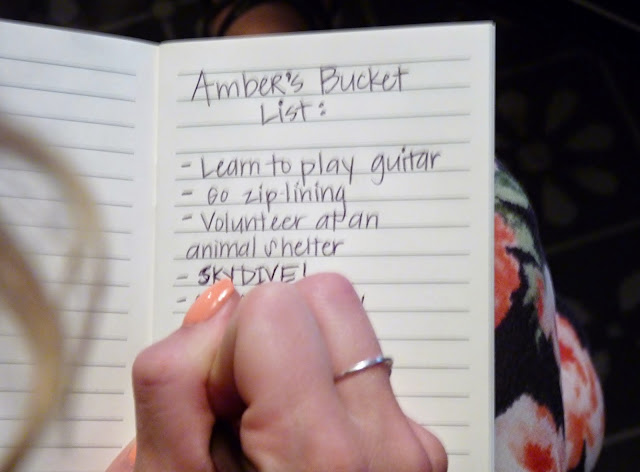 Amber's Bucket
List:
- Learn to play guitar
- Go zip-lining
- Volunteer at an
animal shelter
- SKYDIVE!
-